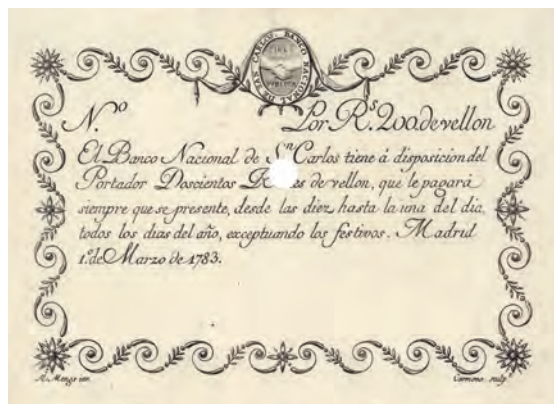 BANCO NACIONAL DE SAN CARLOS.
N.º Por R.s 200. de vellon
El Banco Nacional de S.n Carlos tiene á disposicion del
Portador Doscientos de vellon, que le pagará
siempre que se presente, desde las diez hasta la una del dia,
todos los dias del año, exceptuando los festivos. Madrid
1.º de Marzo de 1783.
Carmona sculp.